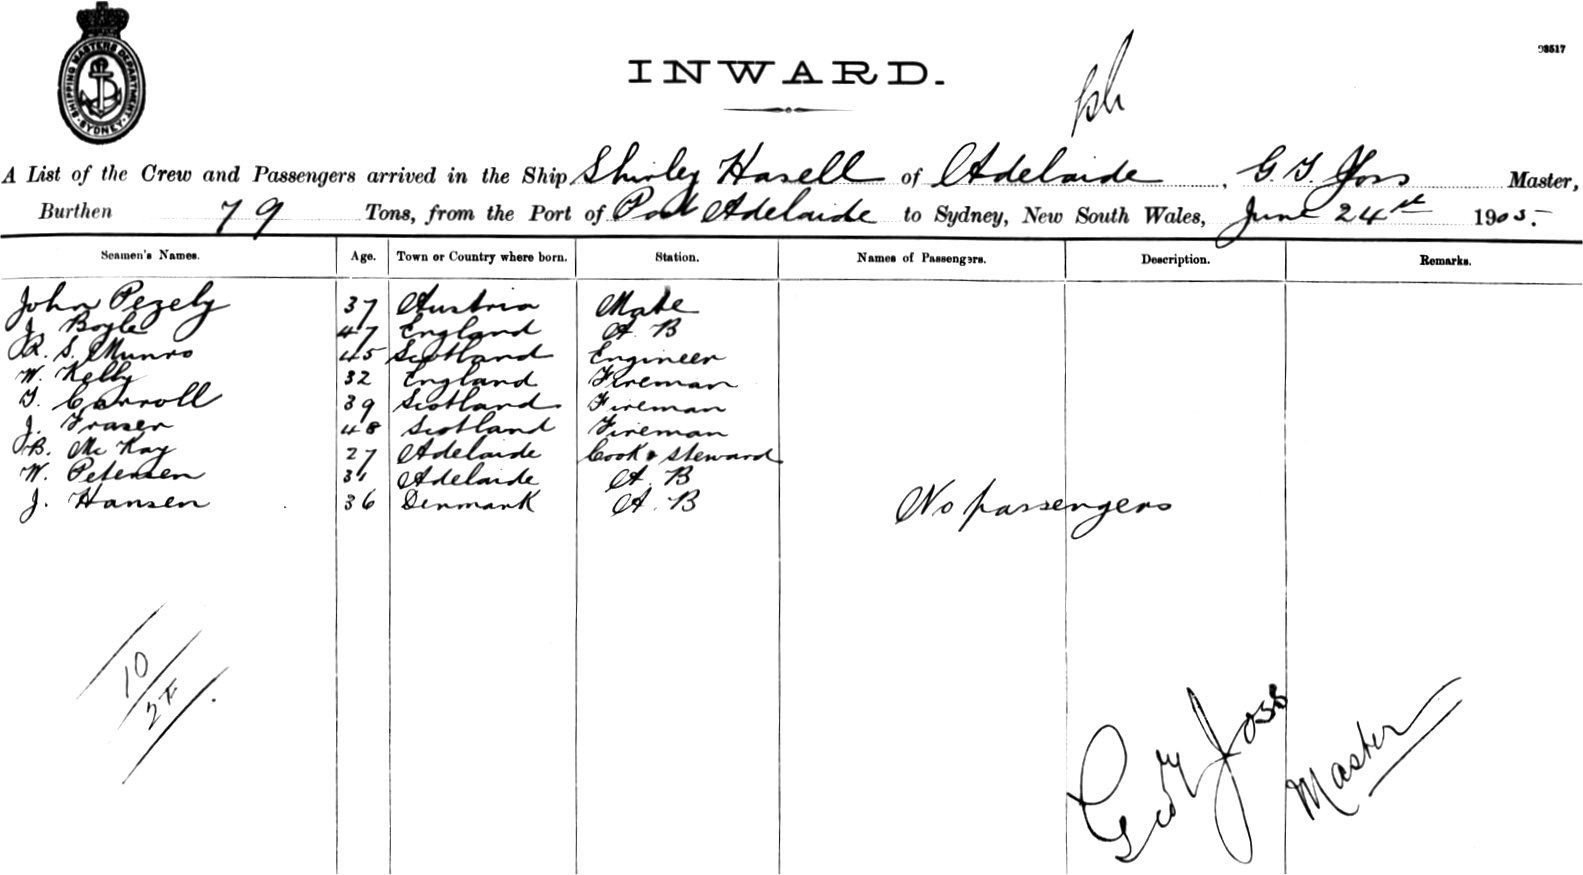 SHIPPING MASTERS DEPARTMENT
SYDNEY
98517
INWARD.
A List of the Crew and Passengers arrived in the Ship Shirley Hasell of Adelaide, G. T. Joss Master,
Burthen 79 Tons, from the Port of Port Adelaide to Sydney, New South Wales, June 24st 1905.
Seamen's Names. Age. Town or Country where born. Station. Names of Passengers. Description. Remarks.
John Pezely 37 Austria Mate
J. Boyle 47 England A. B
R. S. Munro 45 Scotland Engineer
W. Kelly 32 England Fireman
T. Carroll 39 Scotland Fireman
J. Fraser 48 Scotland Fireman
B. Mc Kay 27 Adelaide Cook & Steward
W. Petersen 31 Adelaide A. B
J. Hansen 36 Denmark A. B
No passengers
10
Geo Joss
Master